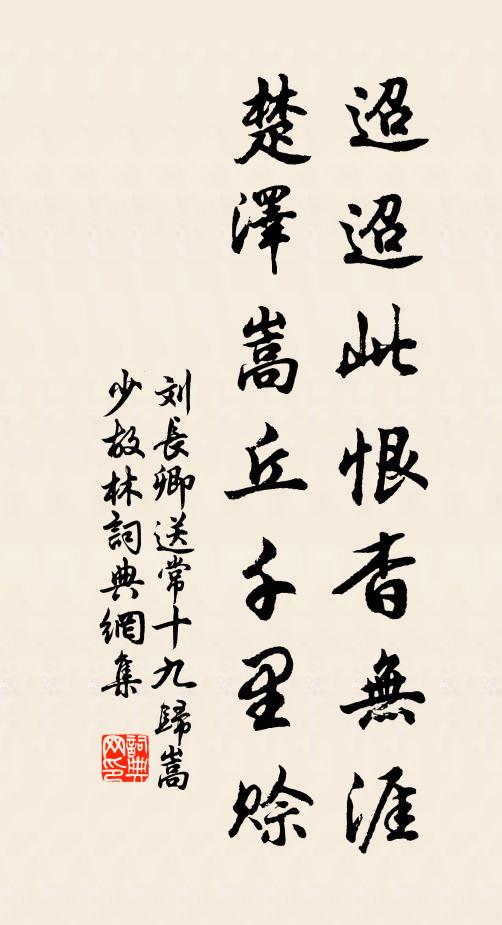 迢迢此恨杳無涯
楚澤嵩丘千里賒
刘長卿送常十九歸嵩
少故林詞典網集
詞典
网印